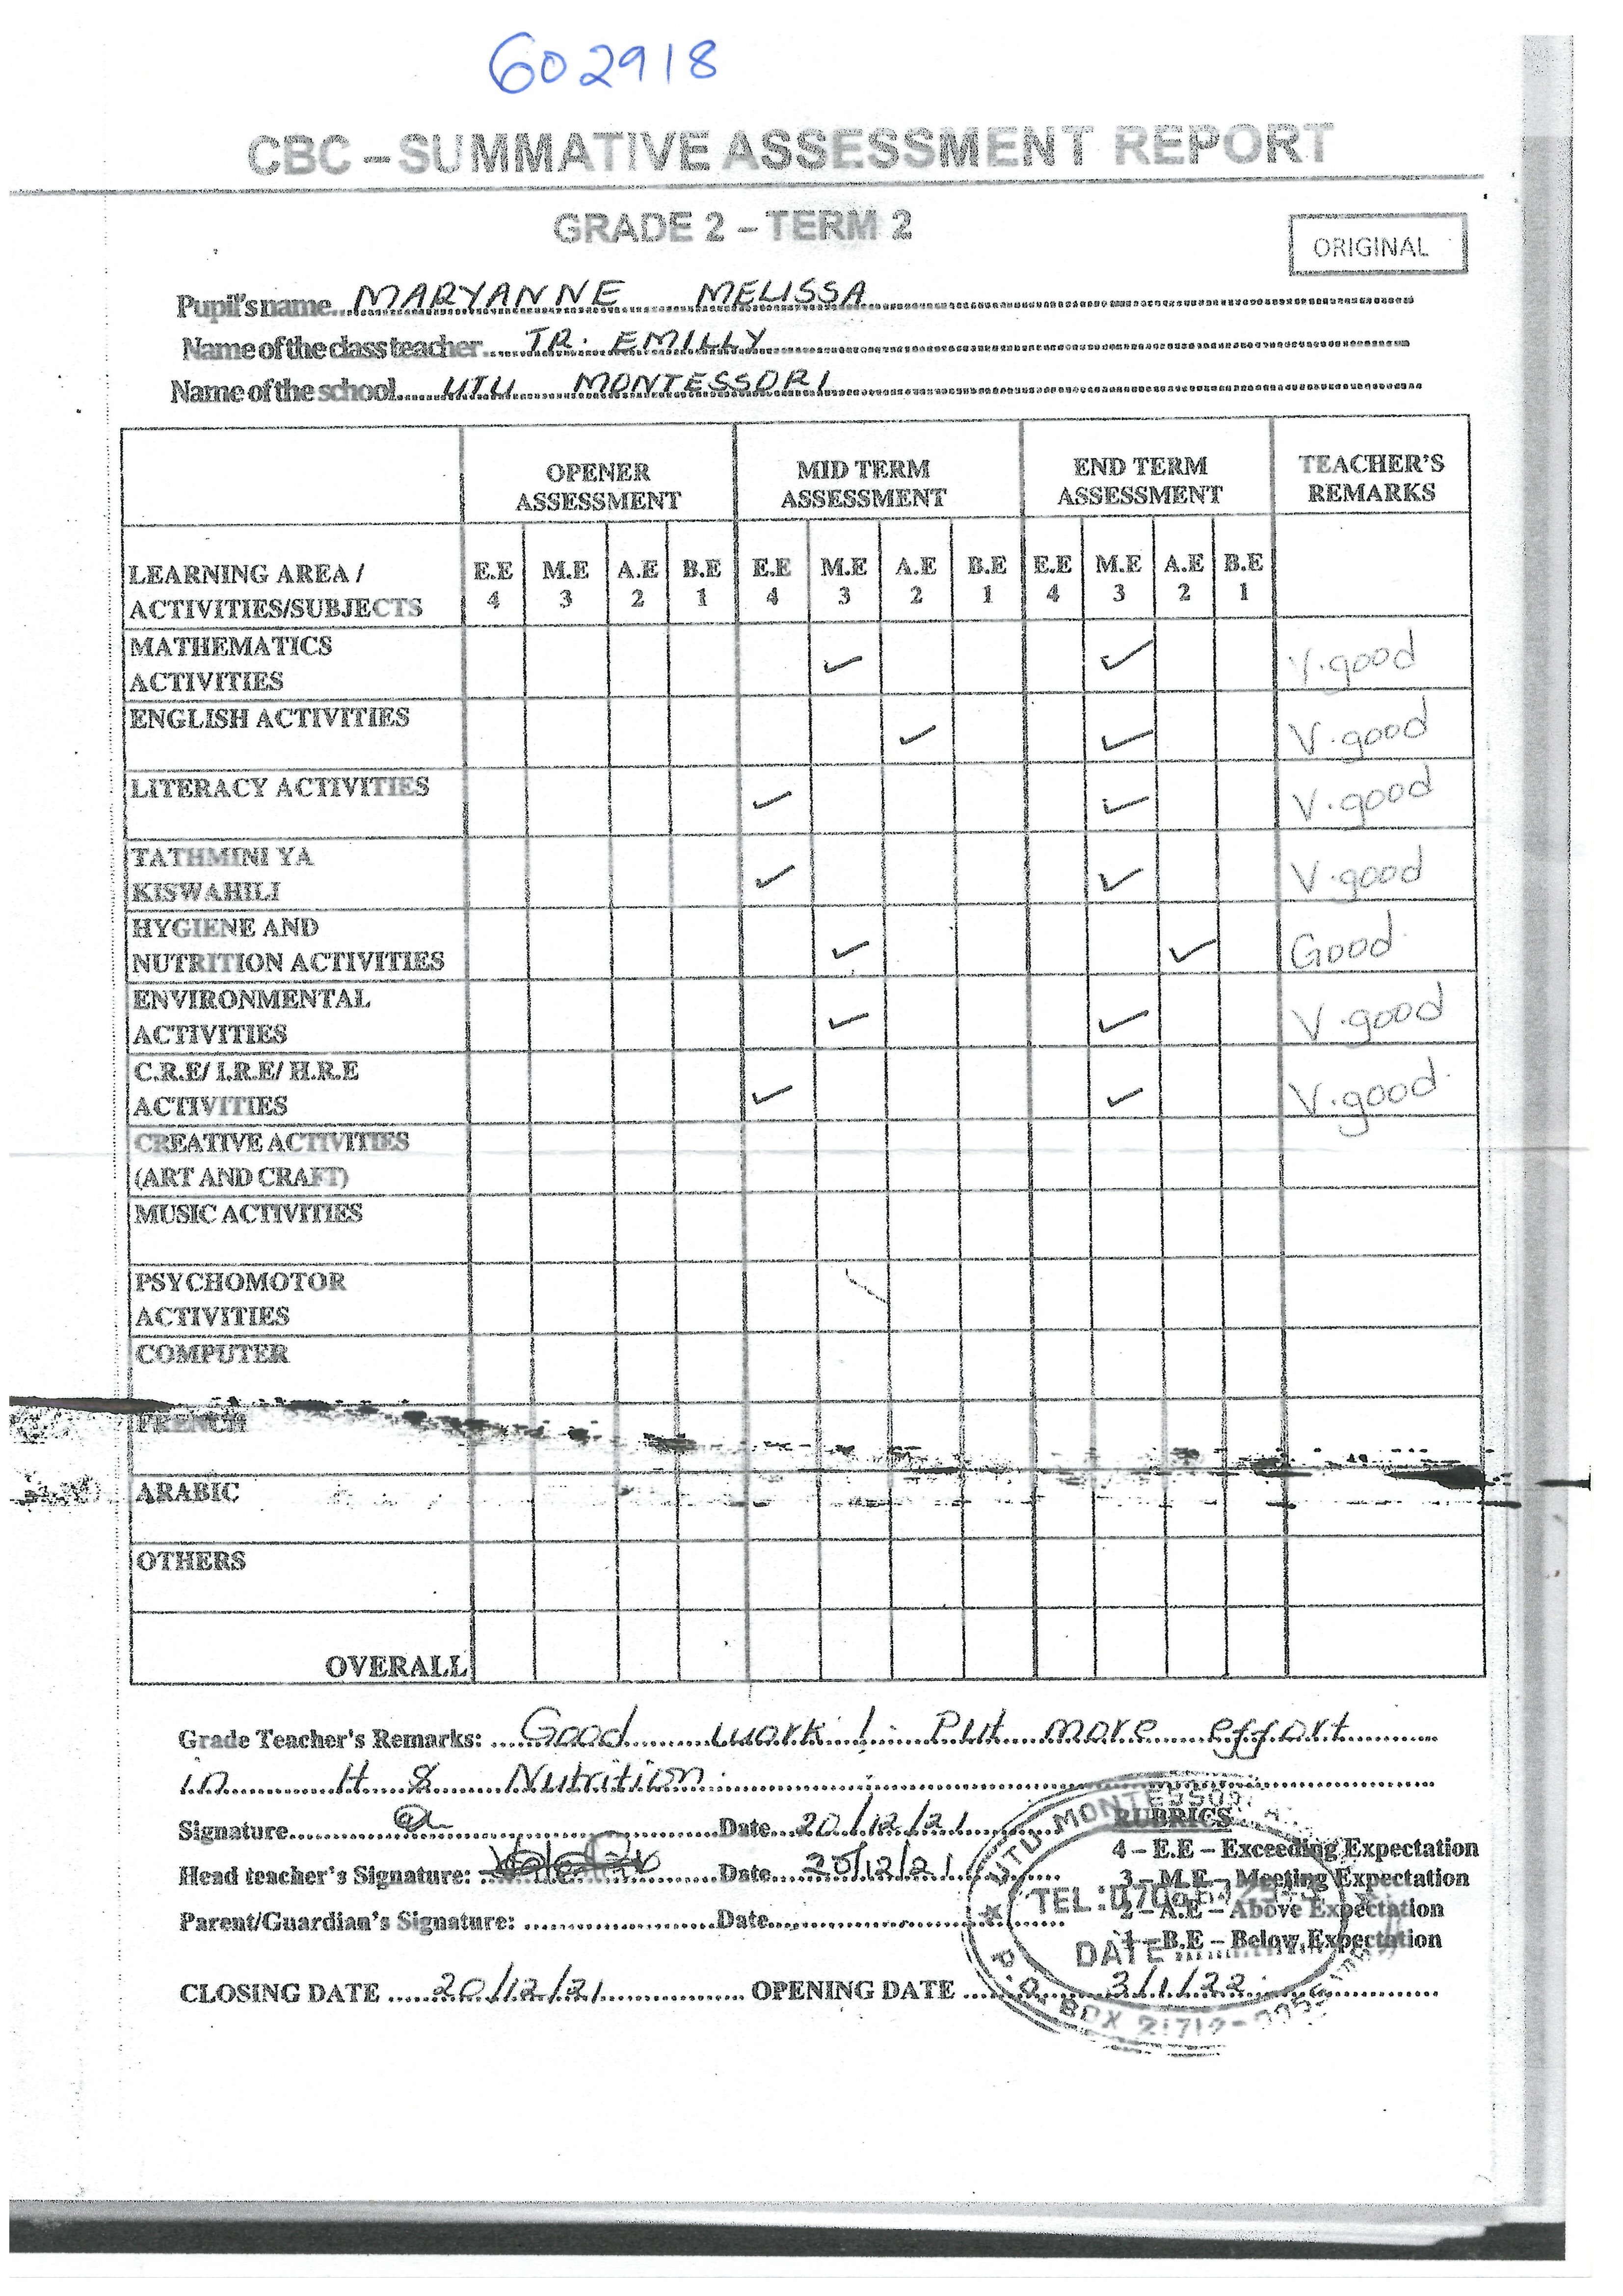 602918
CBC – SUMMATIVE ASSESSMENT REPORT
GRADE 2 – TERM 2
ORIGINAL
Pupil's name MARYANNE MELISSA
Name of the class teacher TR. EMILLY
Name of the school UTU MONTESSORI
OPENER ASSESSMENT MID TERM ASSESSMENT END TERM ASSESSMENT TEACHER'S REMARKS
LEARNING AREA / ACTIVITIES/SUBJECTS E.E 4 M.E 3 A.E 2 B.E 1 E.E 4 M.E 3 A.E 2 B.E 1 E.E 4 M.E 3 A.E 2 B.E 1
MATHEMATICS ACTIVITIES ✓ ✓ V.good
ENGLISH ACTIVITIES ✓ ✓ V.good
LITERACY ACTIVITIES ✓ ✓ V.good
TATHMINI YA KISWAHILI ✓ ✓ V.good
HYGIENE AND NUTRITION ACTIVITIES ✓ ✓ Good
ENVIRONMENTAL ACTIVITIES ✓ ✓ V.good
C.R.E/ I.R.E/ H.R.E ACTIVITIES ✓ ✓ V.good
CREATIVE ACTIVITIES (ART AND CRAFT)
MUSIC ACTIVITIES
PSYCHOMOTOR ACTIVITIES
COMPUTER
FRENCH
ARABIC
OTHERS
OVERALL
Grade Teacher's Remarks: Good work! Put more effort
in H & Nutrition.
Signature Date 20/12/21
Head teacher's Signature: Date 20/12/21
Parent/Guardian's Signature: Date
RUBRICS
4 – E.E – Exceeding Expectation
3 – M.E – Meeting Expectation
2 – A.E – Above Expectation
1 – B.E – Below Expectation
UTU MONTESSORI
TEL:
DATE
P.O. BOX
CLOSING DATE 20/12/21 OPENING DATE 3/1/22